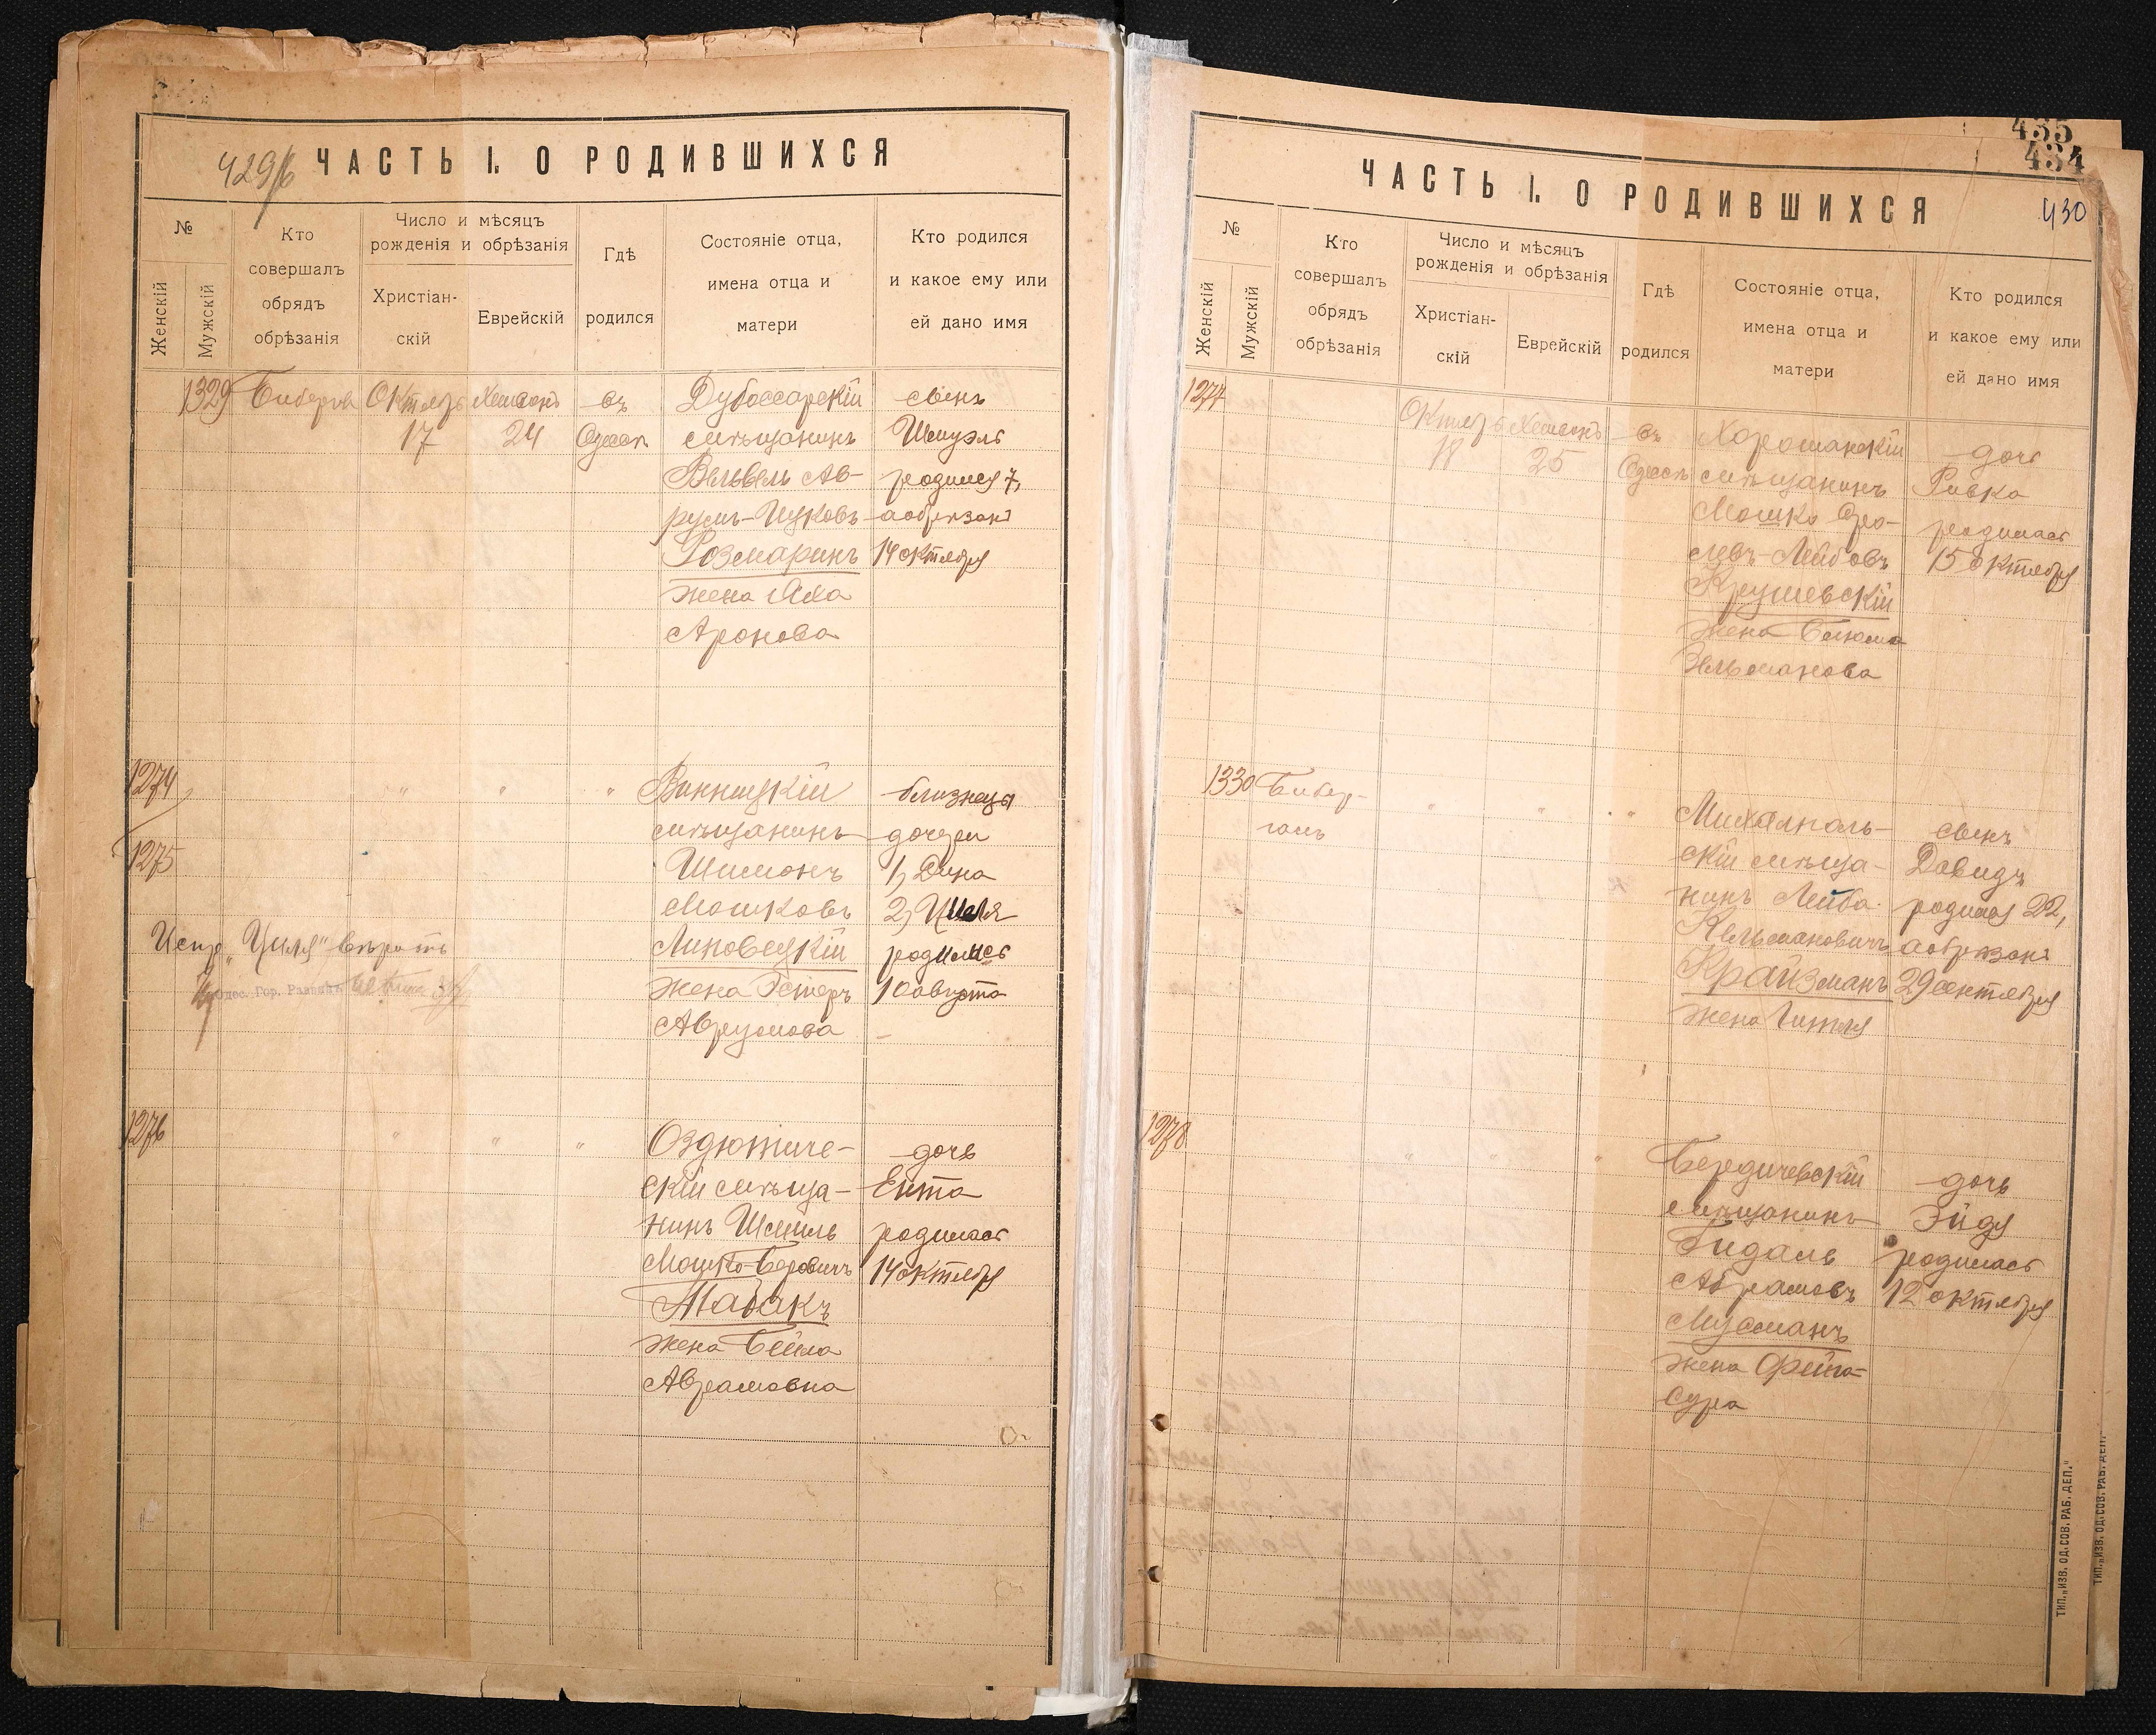 429/б
ЧАСТЬ I. О РОДИВШИХСЯ
№
Женскій
Мужскій
Кто
совершалъ
обрядъ
обрѣзанія
Число и мѣсяцъ
рожденія и обрѣзанія
Христіан-
скій
Еврейскій
Гдѣ
родился
Состояніе отца,
имена отца и
матери
Кто родился
и какое ему или
ей дано имя
1329
Октябрь
17
24
въ
Одессѣ
Дубоссарскій
мѣщанинъ
Вельвель Ав-
румъ-Ицковъ
Розмаринъ
жена
Аронова
сынъ
Шмуэль
родился 7,
а обрѣзанъ
14 октября
1274
1275
" " "
Винницкій
мѣщанинъ
Шимонъ
Мошковъ
Липовецкій
жена Эстеръ
Аврумова
близнецы
дочери
1) Дина
2) Циля
родились
10 августа
Испр. „Циля" вѣрить
Одес. Гор. Раввинъ
1276
" " "
Оздютиче-
скій мѣща-
нинъ Шмиль
Мошко-Беровичъ
Табакъ
жена Бейла
Аврамовна
дочь
Ента
родилась
14 октября
435
434
430
ЧАСТЬ I. О РОДИВШИХСЯ
№
Женскій
Мужскій
Кто
совершалъ
обрядъ
обрѣзанія
Число и мѣсяцъ
рожденія и обрѣзанія
Христіан-
скій
Еврейскій
Гдѣ
родился
Состояніе отца,
имена отца и
матери
Кто родился
и какое ему или
ей дано имя
1277
Октябрь
18
25
въ
Одессѣ
Хорошанскій
мѣщанинъ
Мошко Сро-
левъ-Лейбовъ
Крушевскій
жена Блюма
Зельманова
дочь
Ривка
родилась
15 октября
1330
Бибер-
ганъ
" " "
Михалполь-
скій мѣща-
нинъ Лейба
Кельмановичъ
Крайзманъ
жена Гитля
сынъ
Давидъ
родился 22,
а обрѣзанъ
29 сентября
1278
" " "
Бердичевскій
мѣщанинъ
Гидаль
Абрамовъ
Мусманъ
жена Фейга-
Сура
дочь
Эйдя
родилась
12 октября
ТИП. „ИЗВ. ОД. СОВ. РАБ. ДЕП."
ТИП. „ИЗВ. ОД. СОВ. РАБ. ДЕП."